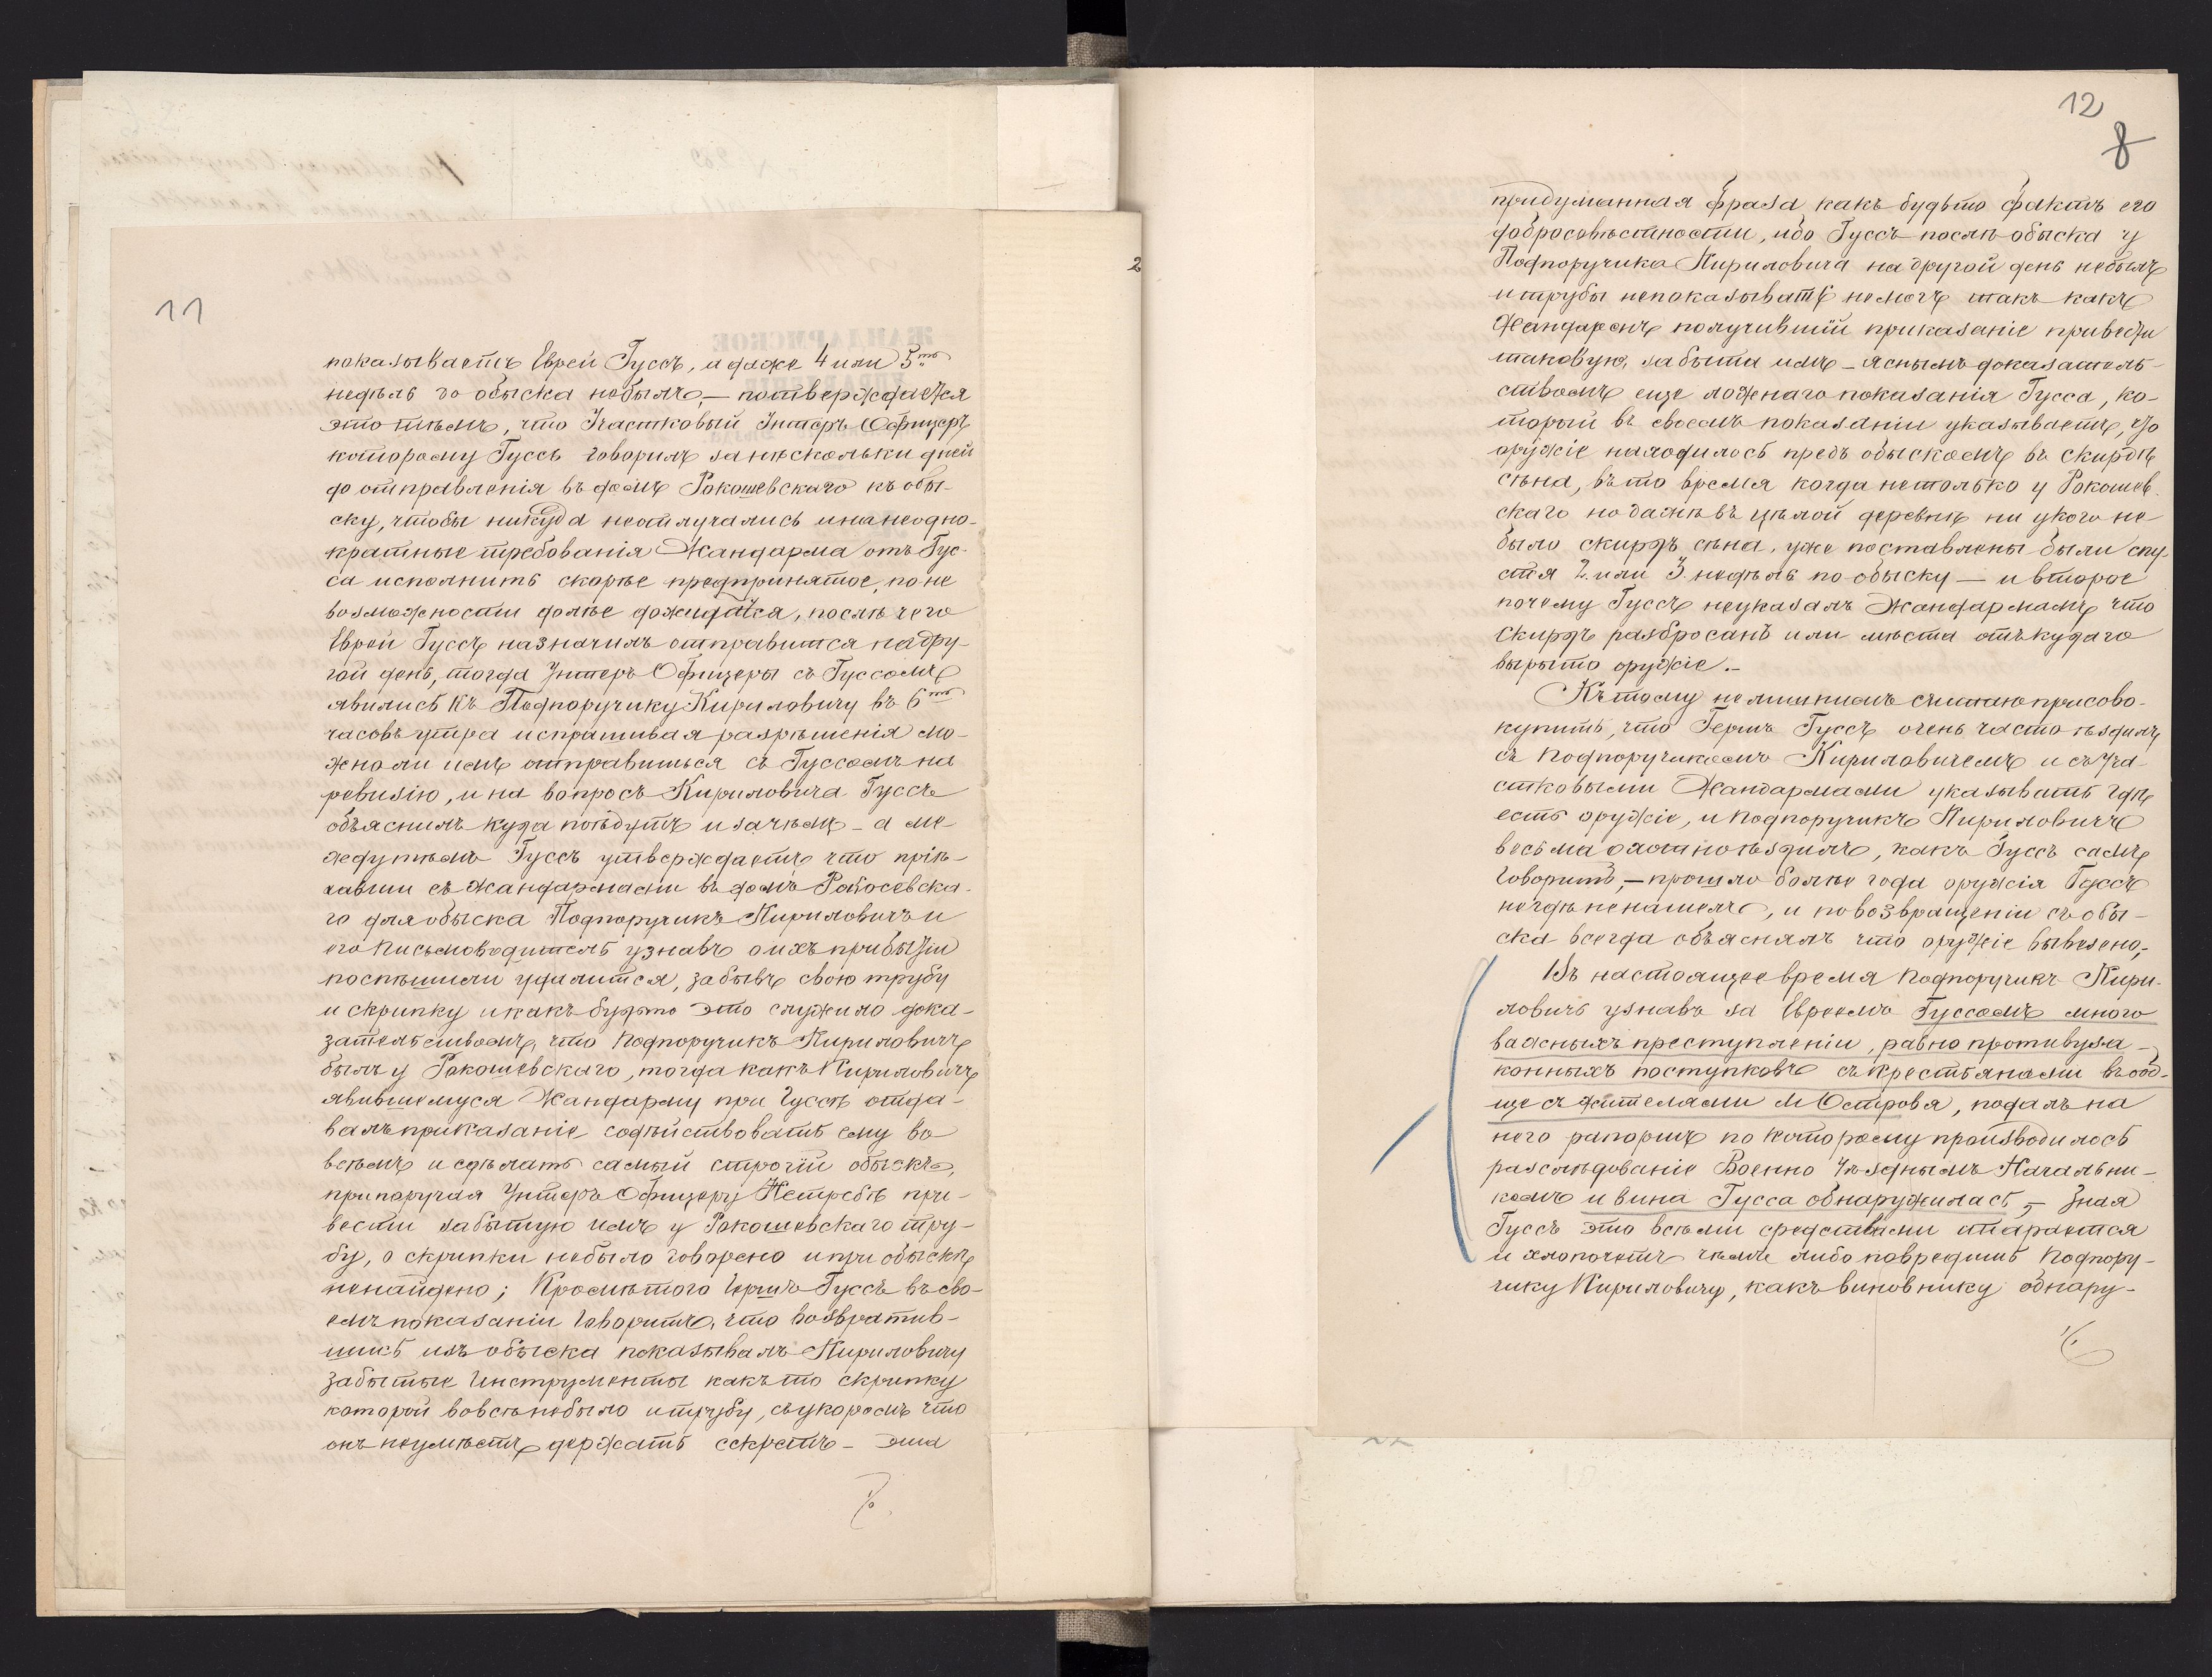 11
показываетъ Еврей Гуссъ, и даже 4 или 5ть
недѣль до обыска небылъ,— потверждается
это тѣмъ, что Участковый Унтеръ Офицеръ
которому Гуссъ говорилъ за нѣсколько дней
до отправленія въ домъ Рокошевскаго къ обы-
ску, чтобы никуда неотлучались и на неодно-
кратные требованія Жандарма отъ Гус-
са исполнить скорѣе предпринятое, по не
возможности долѣе дожидатся, послѣ чего
Еврей Гуссъ назначилъ отправится на дру-
гой день, тогда Унтеръ Офицеры съ Гуссомъ
явились къ Подпоручику Кириловичу въ 6ть
часовъ утра и спрашивая разрѣшенія мо-
жно ли имъ отправиться съ Гуссомъ на
ревизію, и на вопросъ Кириловича Гуссъ
объяснилъ куда поѣдутъ и зачѣмъ — а ме-
ждутѣмъ Гуссъ утверждаетъ что пріѣ-
хавши съ Жандармами въ домъ Рокосевска-
го для обыска Подпоручикъ Кириловичъ и
его Письмоводитель узнавъ о ихъ прибытіи
поспѣшили удалится, забывъ свою трубу
и скрипку и какъ будьто это служило дока-
зательствомъ, что Подпоручикъ Кириловичъ
былъ у Рокошевскаго, тогда какъ Кириловичъ
явившемуся Жандарму при Гуссѣ отда-
валъ приказаніе содѣйствовать ему во
всемъ и сдѣлать самый строгій обыскъ,
припоручая Унтеръ Офицеру Нетребѣ при-
вести забытую имъ у Рокошевскаго тру-
бу, о скрипки небыло говорено и при обыскѣ
ненайдено; Кромѣтого Гершъ Гуссъ въ сво-
емъ показаніи говоритъ, что возвратив-
шись изъ обыска показывалъ Кириловичу
забытые инструменты какъ то скрипку
которой вовсѣ небыло и трубу, съ укоромъ что
онъ неумѣетъ держать секретъ — эта
2
12
8
придуманная фраза какъ будьто фактъ его
добросовѣстности, ибо Гуссъ послѣ обыска у
Подпоручика Кириловича на другой день небылъ
и трубы непоказывать немогъ такъ какъ
Жандармъ получившій приказаніе привезти
таковую, забыта имъ — яснымъ доказатель-
ствомъ еще ложнаго показанія Гусса, ко-
торый въ своемъ показаніи указываетъ, что
оружіе находилось предъ обыскомъ въ скирдѣ
сѣна, въ то время когда нетолько у Рокошев-
скаго но даже въ цѣлой деревнѣ ни укого не-
было скирдъ сѣна, уже поставлены были спу-
стя 2. или 3. недѣль по обыску — и второе
почему Гуссъ неуказалъ Жандармамъ что
скирдъ разбросанъ или мѣста отъкудаго
вырыто оружіе.—
Къ тому не лишнимъ считаю присово-
купить, что Гершъ Гуссъ очень часто ѣздилъ
съ Подпоручикомъ Кириловичемъ и съ Уча-
стковыми Жандармами указывать гдѣ
есть оружіе, и Подпоручикъ Кириловичъ
весьма охотно ѣздилъ, какъ Гуссъ самъ
говоритъ,— прошло болѣе года оружія Гуссъ
негдѣ ненашелъ, и по возвращеніи съ обы-
ска всегда объяснялъ что оружіе вывезено,—
Въ настоящее время Подпоручикъ Кири-
ловичъ узнавъ за Евреемъ Гуссомъ много
важныхъ преступленіи, равно противуза-
конныхъ поступковъ съ крестьянами вооб-
ще съ жителями М Острова, подалъ на
него рапортъ по которому производилось
разслѣдованіе Военно Уѣзднымъ Начальни-
комъ и вина Гусса обнаружилась,— зная
Гуссъ это всѣми средствами старается
и хлопочетъ чѣмъ либо повредить Подпору-
чику Кириловичу, какъ виновнику обнару-